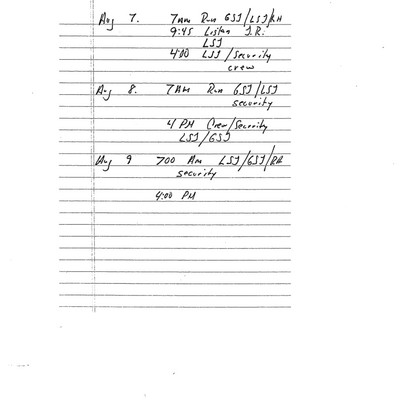 Aug 7. 7am Run GSJ/LSJ/RH
9:45 J.R.
LSJ
4:00 LSJ/Security
crew
Aug 8. 7AM Run GSJ/LSJ
security
4 PM Crew/Security
LSJ/GSJ
Aug 9 700 Am LSJ/GSJ/RR
security
4:00 PM